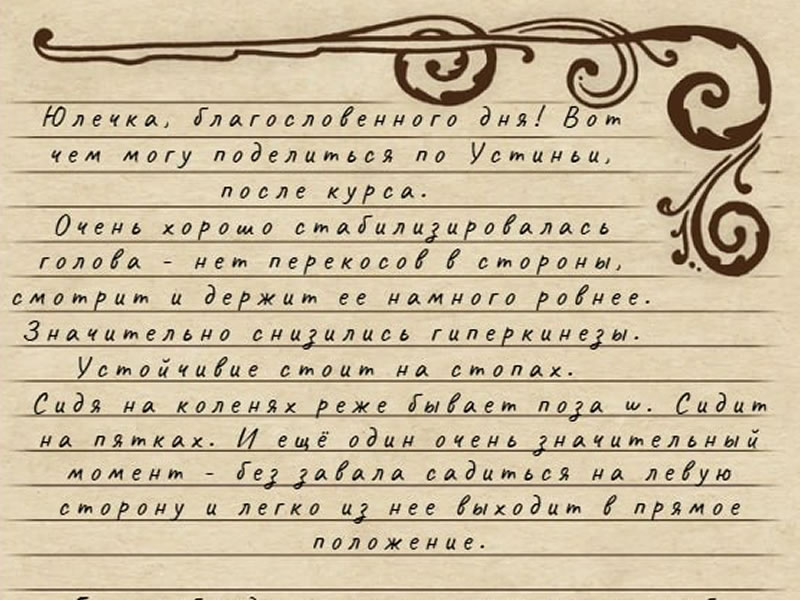 Юлечка, благословенного дня! Вот
чем могу поделиться по Устиньи,
после курса.
Очень хорошо стабилизировалась
голова - нет перекосов в стороны,
смотрит и держит ее намного ровнее.
Значительно снизились гиперкинезы.
Устойчивие стоит на стопах.
Сидя на коленях реже бывает поза w. Сидит
на пятках. И ещё один очень значительный
момент - без завала садиться на левую
сторону и легко из нее выходит в прямое
положение.